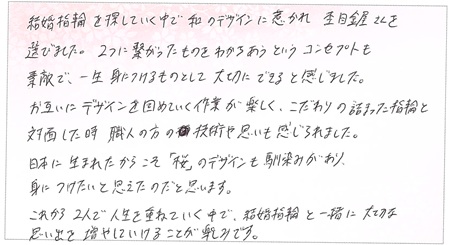 結婚指輪を探していく中で和のデザインに惹かれ 杢目金屋さんを
選びました。2つに繋がったものをわかちあうというコンセプトも
素敵で、一生身につけるものとして大切にできると感じました。
お互いにデザインを固めていく作業が楽しく、こだわりの詰まった指輪と
対面した時 職人の方の技術や思いも感じられました。
日本に生まれたからこそ「桜」のデザインも馴染みがあり、
身につけたいと思えたのだと思います。
これから2人で人生を重ねていく中で、結婚指輪と一緒に大切な
思い出を増やしていけることが楽しみです。